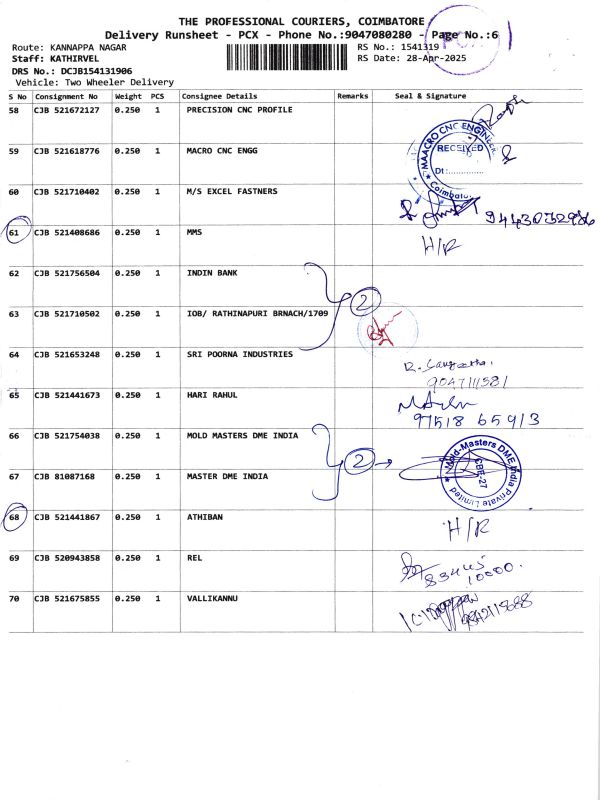 THE PROFESSIONAL COURIERS, COIMBATORE
Delivery Runsheet - PCX - Phone No.:9047080280 - Page No.:6
Route: KANNAPPA NAGAR
RS No.: 1541319
Staff: KATHIRVEL
RS Date: 28-Apr-2025
DRS No.: DCJB154131906
Vehicle: Two Wheeler Delivery
S No Consignment No Weight PCS Consignee Details Remarks Seal & Signature
58 CJB 521672127 0.250 1 PRECISION CNC PROFILE
59 CJB 521618776 0.250 1 MACRO CNC ENGG
MAACRO CNC ENGINEER
RECEIVED
Dt :
Coimbatore
60 CJB 521710402 0.250 1 M/S EXCEL FASTNERS
9443032986
61 CJB 521408686 0.250 1 MMS
H/R
62 CJB 521756504 0.250 1 INDIN BANK
2
63 CJB 521710502 0.250 1 IOB/ RATHINAPURI BRNACH/1709
64 CJB 521653248 0.250 1 SRI POORNA INDUSTRIES
65 CJB 521441673 0.250 1 HARI RAHUL
97518 65913
66 CJB 521754038 0.250 1 MOLD MASTERS DME INDIA
2 →
Mold-Masters DME India Private Limited
CBE-27
67 CJB 81087168 0.250 1 MASTER DME INDIA
68 CJB 521441867 0.250 1 ATHIBAN
H/R
69 CJB 520943858 0.250 1 REL
83445
10000.
70 CJB 521675855 0.250 1 VALLIKANNU